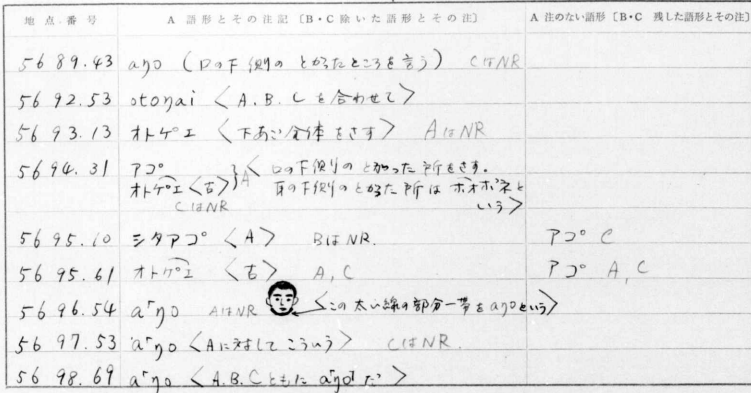 地点番号 A 語形とその注記〔B・C 除いた語形とその注〕 A 注のない語形〔B・C 残した語形とその注〕
56 89.43 aŋo (口の下側の とがったところを言う) CはNR
56 92.53 otoŋai 〈A.B.Cを合わせて〉
56 93.13 オトケ゚エ 〈下あご全体をさす〉 AはNR
56 94.31 アコ゚ オトケ゚エ〈古〉}A〈口の下側のとがった所をさす。
耳の下側のとがった所は ホオボネと
CはNR いう〉
56 95.10 シタアコ゚ 〈A〉 BはNR. アコ゚ C
56 95.61 オトケ゚エ 〈古〉 A, C アコ゚ A, C
56 96.54 a「ŋo AはNR 〈この太い線の部分一帯をaŋoという〉
56 97.53 a「ŋo 〈Aに対してこういう〉 CはNR.
56 98.69 a「ŋo 〈A.B.Cともに a「ŋo」だ〉